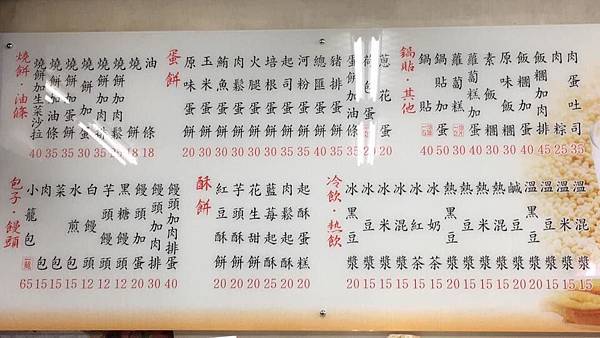 燒餅·油條
燒餅加生菜沙拉 40
燒餅加油條 35
燒餅加蛋餅 35
燒餅加蛋 30
燒餅加肉鬆 30
燒餅 18
油條 18
蛋餅
原味蛋餅 20
玉米蛋餅 30
鮪魚蛋餅 30
肉鬆蛋餅 30
火腿蛋餅 30
培根蛋餅 30
起司蛋餅 30
河粉蛋餅 30
總匯蛋餅 40
豬排蛋餅 35
蛋餅加油條 35
荷包蛋 20
蔥花蛋 20
鍋貼·其他
鍋貼 40
鍋貼加蛋 50
蘿蔔糕 30
蘿蔔糕加蛋 40
素飯糰 30
原味飯糰 30
飯糰加蛋 40
飯糰加肉排 45
肉粽 25
肉蛋吐司 35
包子·饅頭
小籠包 65
肉包 15
菜包 15
水煎包 15
白饅頭 12
芋頭饅頭 12
黑糖饅頭 12
饅頭加蛋 20
饅頭加肉排 30
饅頭加肉排蛋 40
酥餅
紅豆酥餅 20
芋頭酥餅 20
花生甜餅 20
藍莓起酥 25
肉鬆起酥 20
起酥蛋糕 20
冷飲·熱飲
冰黑豆漿 20
冰豆漿 15
冰米漿 15
冰混漿 15
冰紅茶 15
冰奶茶 20
熱黑豆漿 20
熱豆漿 15
熱米漿 15
熱混漿 15
鹹豆漿 20
溫黑豆漿 20
溫豆漿 15
溫米漿 15
溫混漿 15